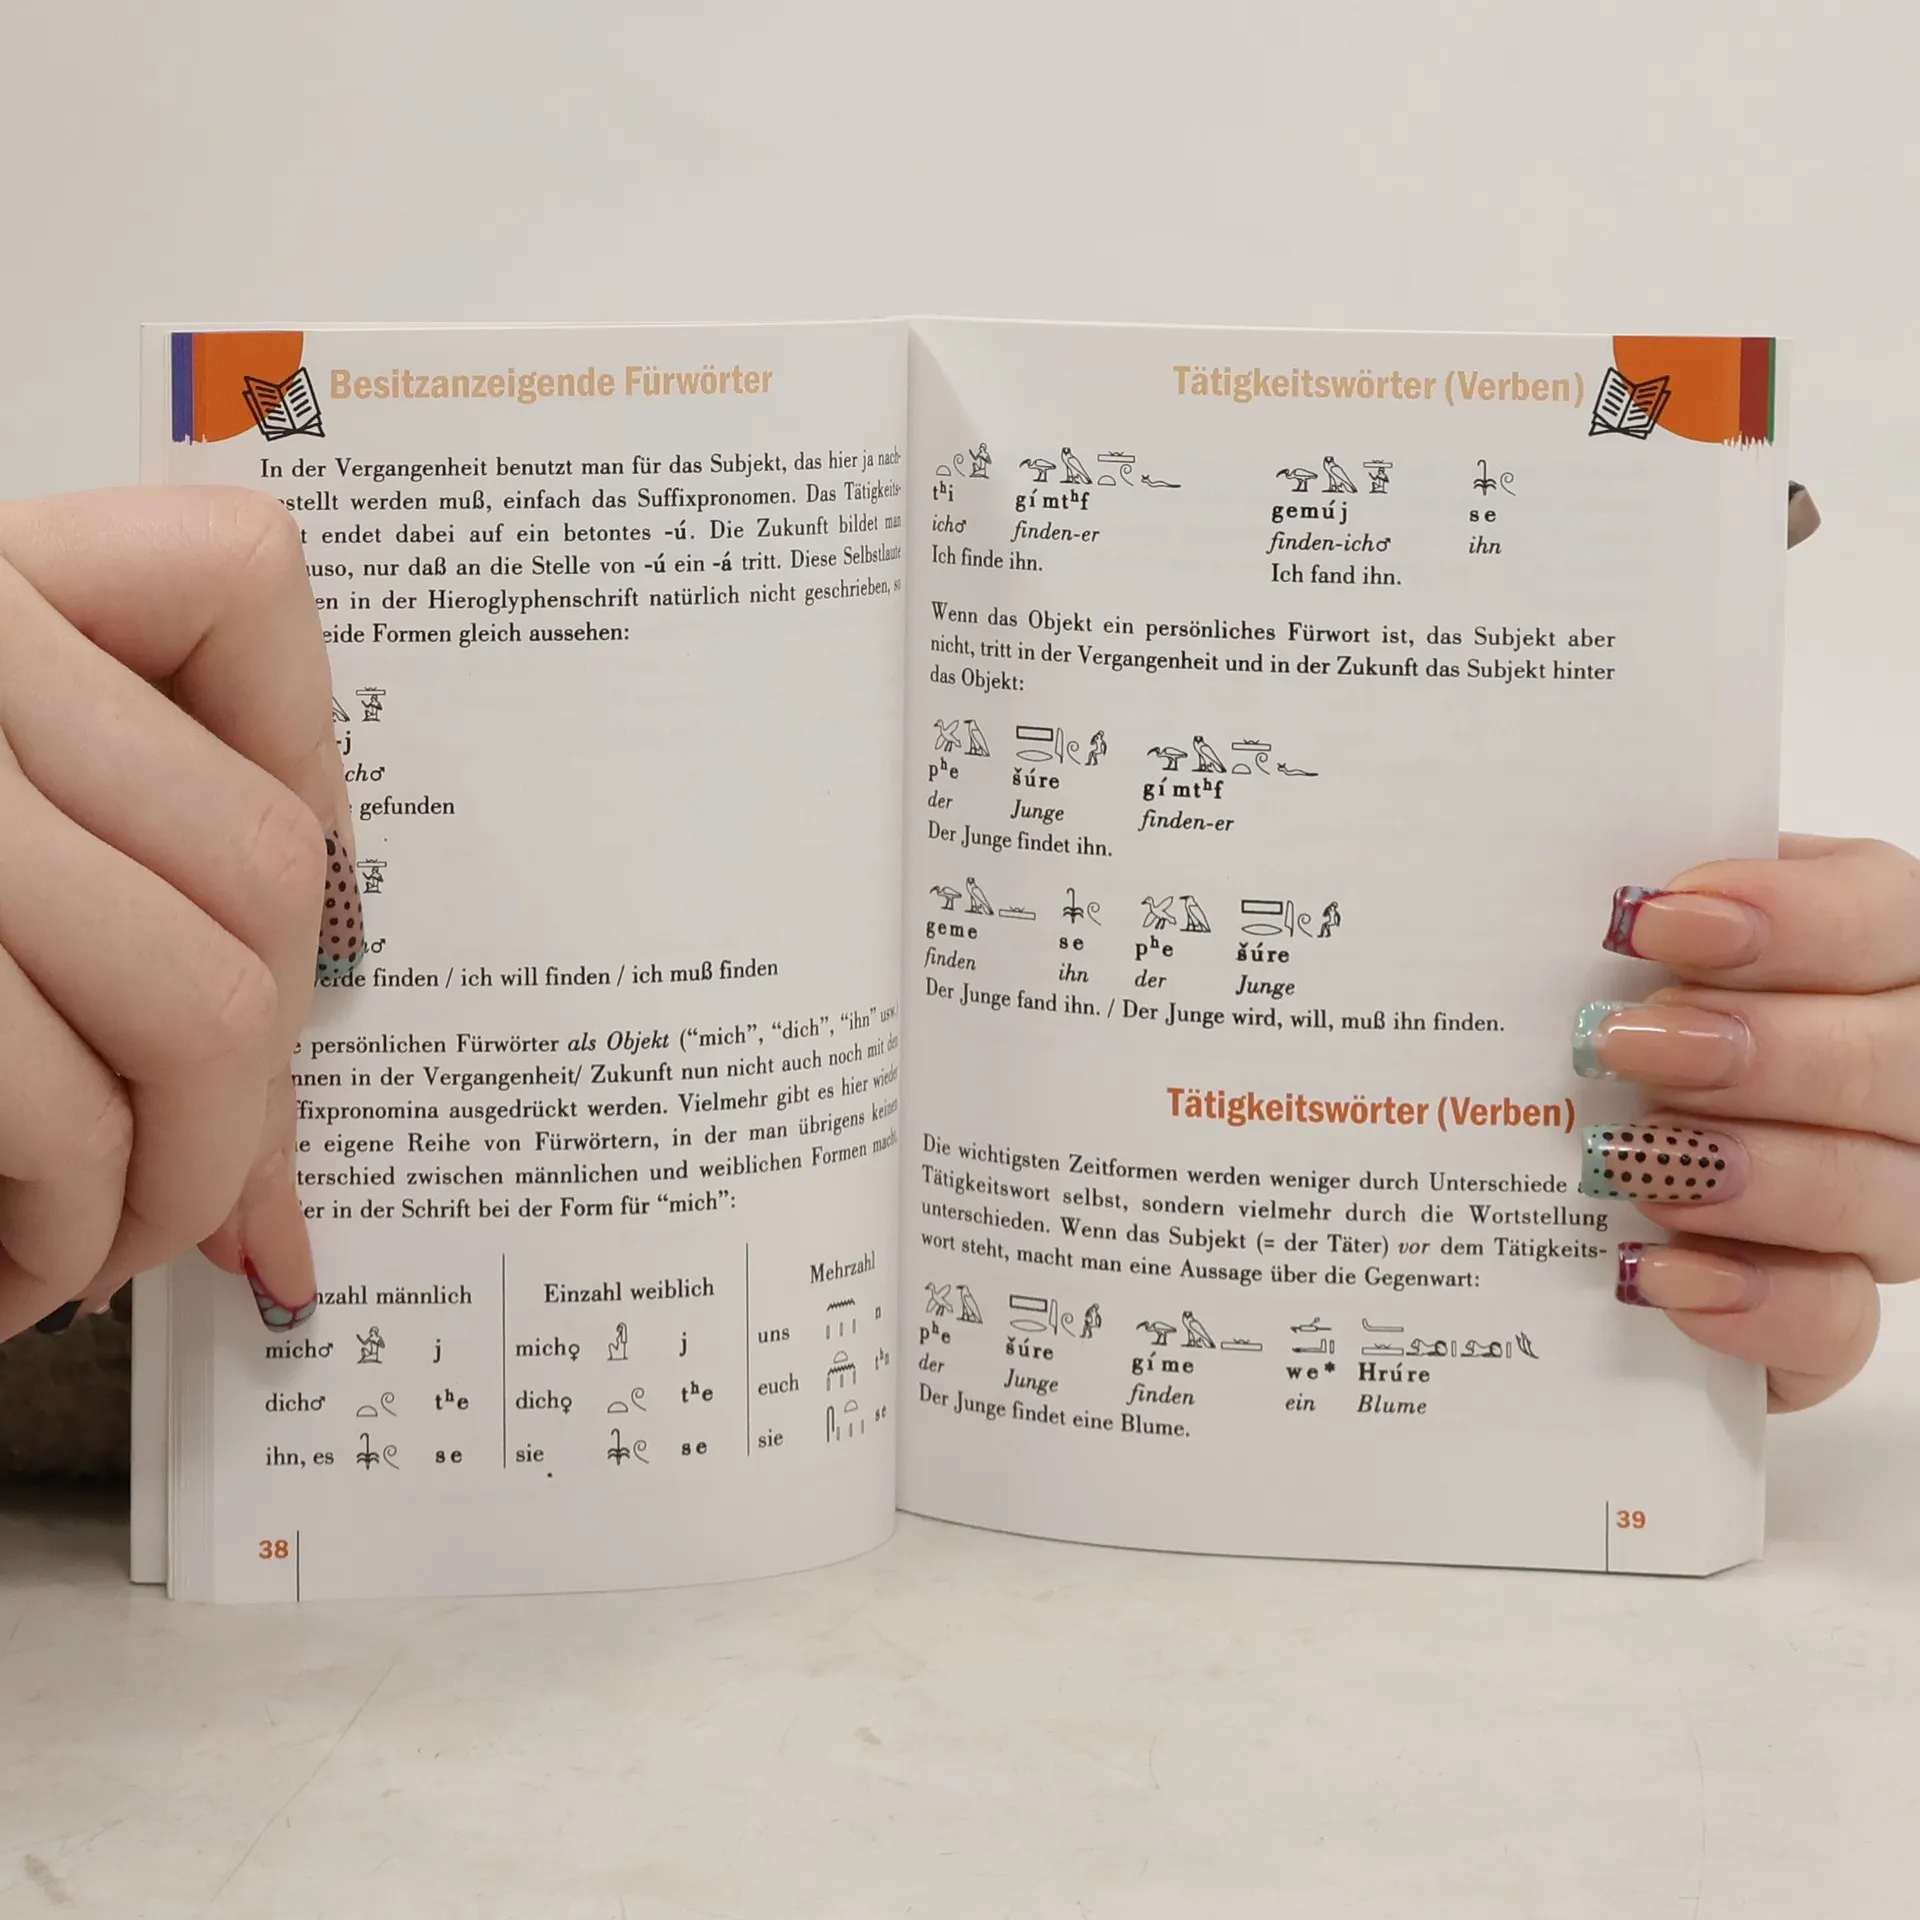 Besitzanzeigende Fürwörter
In der Vergangenheit benutzt man für das Subjekt, das hier ja nach-
stellt werden muß, einfach das Suffixpronomen. Das Tätigkeits-
t endet dabei auf ein betontes -ú. Die Zukunft bildet man
uso, nur daß an die Stelle von -ú ein -á tritt. Diese Selbstlaute
en in der Hieroglyphenschrift natürlich nicht geschrieben, so
eide Formen gleich aussehen:
-j
ch♂
gefunden
♂
erde finden / ich will finden / ich muß finden
e persönlichen Fürwörter als Objekt (“mich”, “dich”, “ihn” usw.)
nnen in der Vergangenheit/ Zukunft nun nicht auch noch mit den
ffixpronomina ausgedrückt werden. Vielmehr gibt es hier wieder
e eigene Reihe von Fürwörtern, in der man übrigens keinen
terschied zwischen männlichen und weiblichen Formen macht,
er in der Schrift bei der Form für “mich”:
nzahl männlich Einzahl weiblich Mehrzahl
mich♂ j mich♀ j uns n
dich♂ tʰe dich♀ tʰe euch tʰn
ihn, es se sie se sie st
38
Tätigkeitswörter (Verben)
tʰi gímtʰf gemúj se
ich♂ finden-er finden-ich♂ ihn
Ich finde ihn. Ich fand ihn.
Wenn das Objekt ein persönliches Fürwort ist, das Subjekt aber
nicht, tritt in der Vergangenheit und in der Zukunft das Subjekt hinter
das Objekt:
pʰe šúre gímtʰf
der Junge finden-er
Der Junge findet ihn.
geme se pʰe šúre
finden ihn der Junge
Der Junge fand ihn. / Der Junge wird, will, muß ihn finden.
Tätigkeitswörter (Verben)
Die wichtigsten Zeitformen werden weniger durch Unterschiede
Tätigkeitswort selbst, sondern vielmehr durch die Wortstellung
unterschieden. Wenn das Subjekt (= der Täter) vor dem Tätigkeits-
wort steht, macht man eine Aussage über die Gegenwart:
pʰe šúre gíme we* Hrúre
der Junge finden ein Blume
Der Junge findet eine Blume.
39